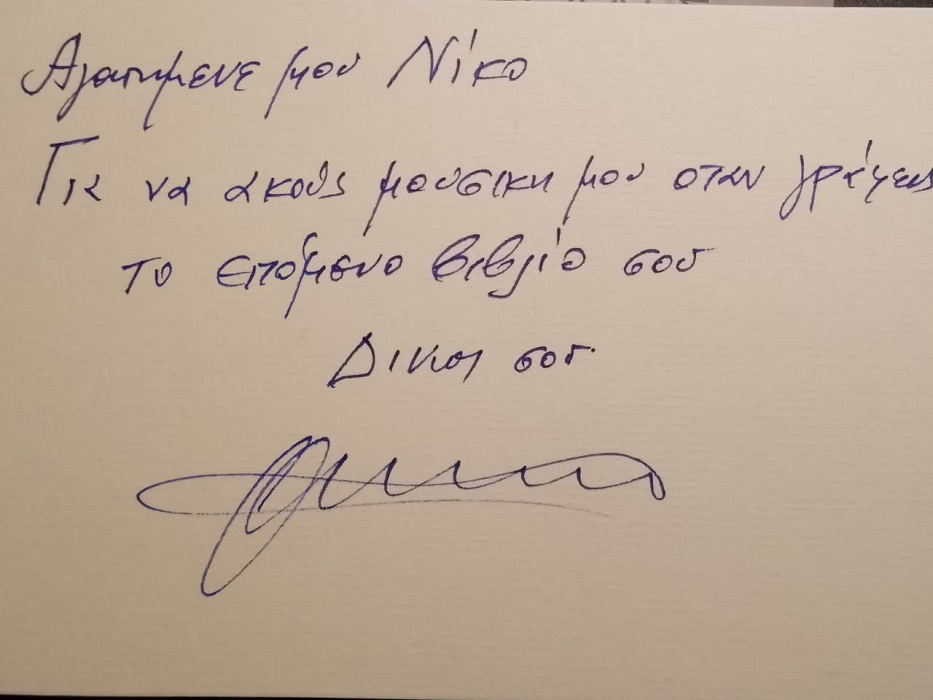 Αγαπημενε μου Νίκο
Για να ακούς μουσικη μου οταν γράφεις
το επόμενο βιβλίο σου
Δικος σου